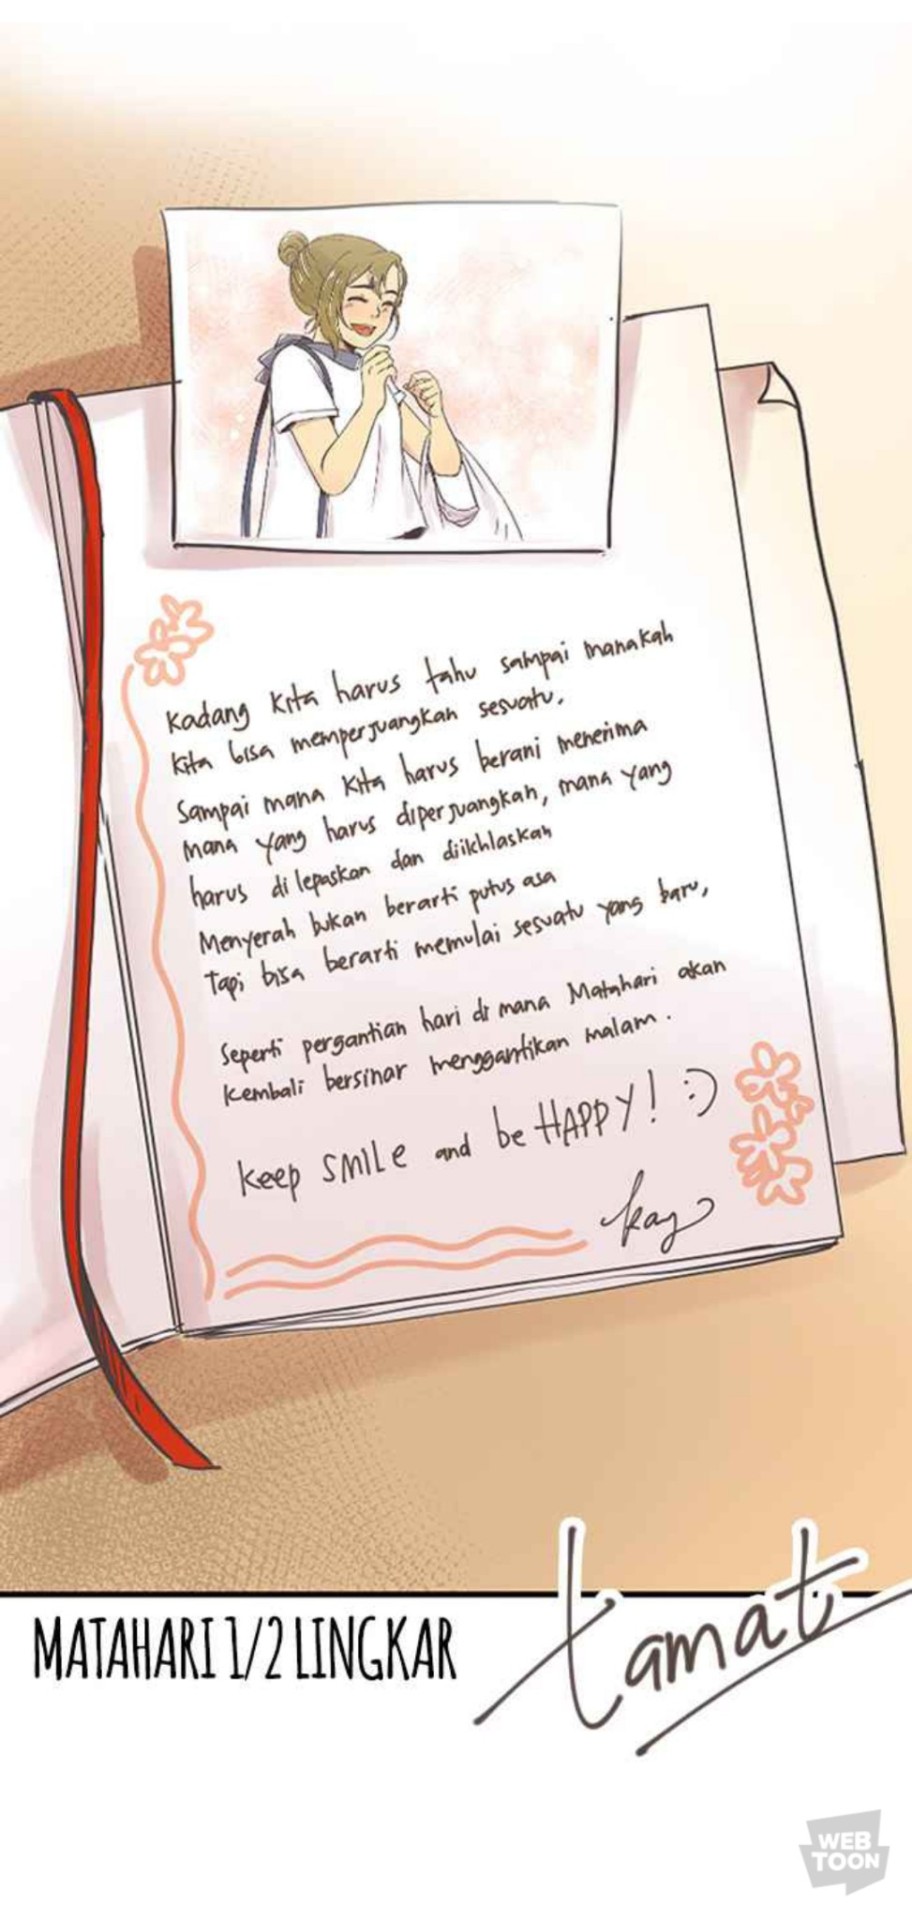 Kadang kita harus tahu sampai manakah
kita bisa memperjuangkan sesuatu.
Sampai mana kita harus berani menerima
mana yang harus diperjuangkan, mana yang
harus dilepaskan dan diikhlaskan
Menyerah bukan berarti putus asa
Tapi bisa berarti memulai sesuatu yang baru,
Seperti pergantian hari di mana Matahari akan
kembali bersinar menggantikan malam.
keep SMILe and be HAPPY! :)
kay
MATAHARI 1/2 LINGKAR
tamat
WEB
TOON